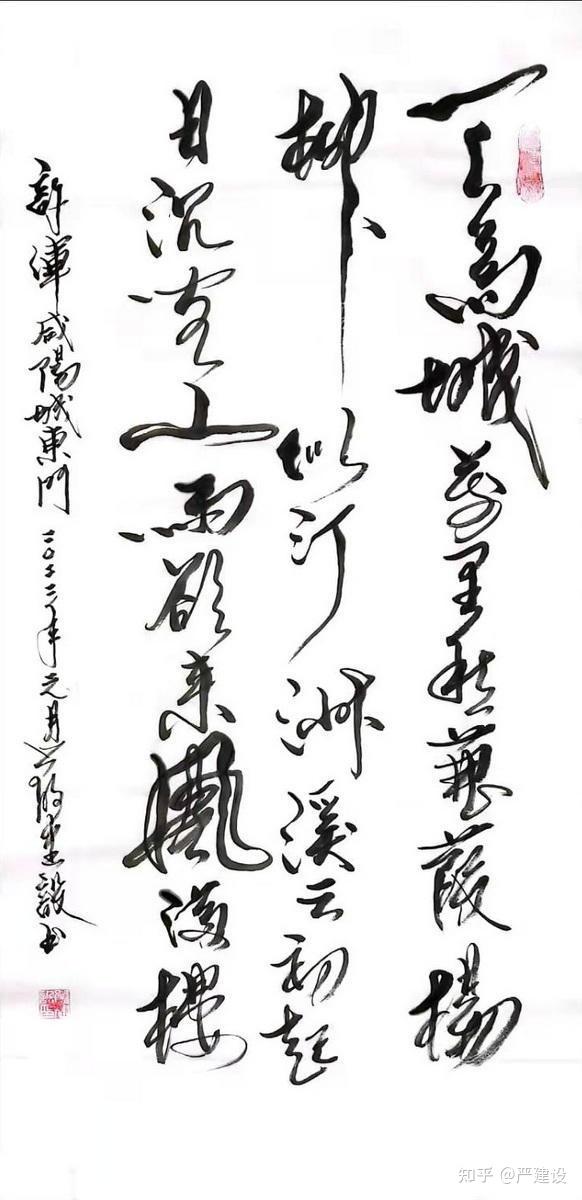 一上高城萬里愁蒹葭楊
柳似汀洲溪云初起
日沉阁山雨欲来風滿樓
許渾咸陽城東門 二〇二二年元月建設书
知乎 @严建设